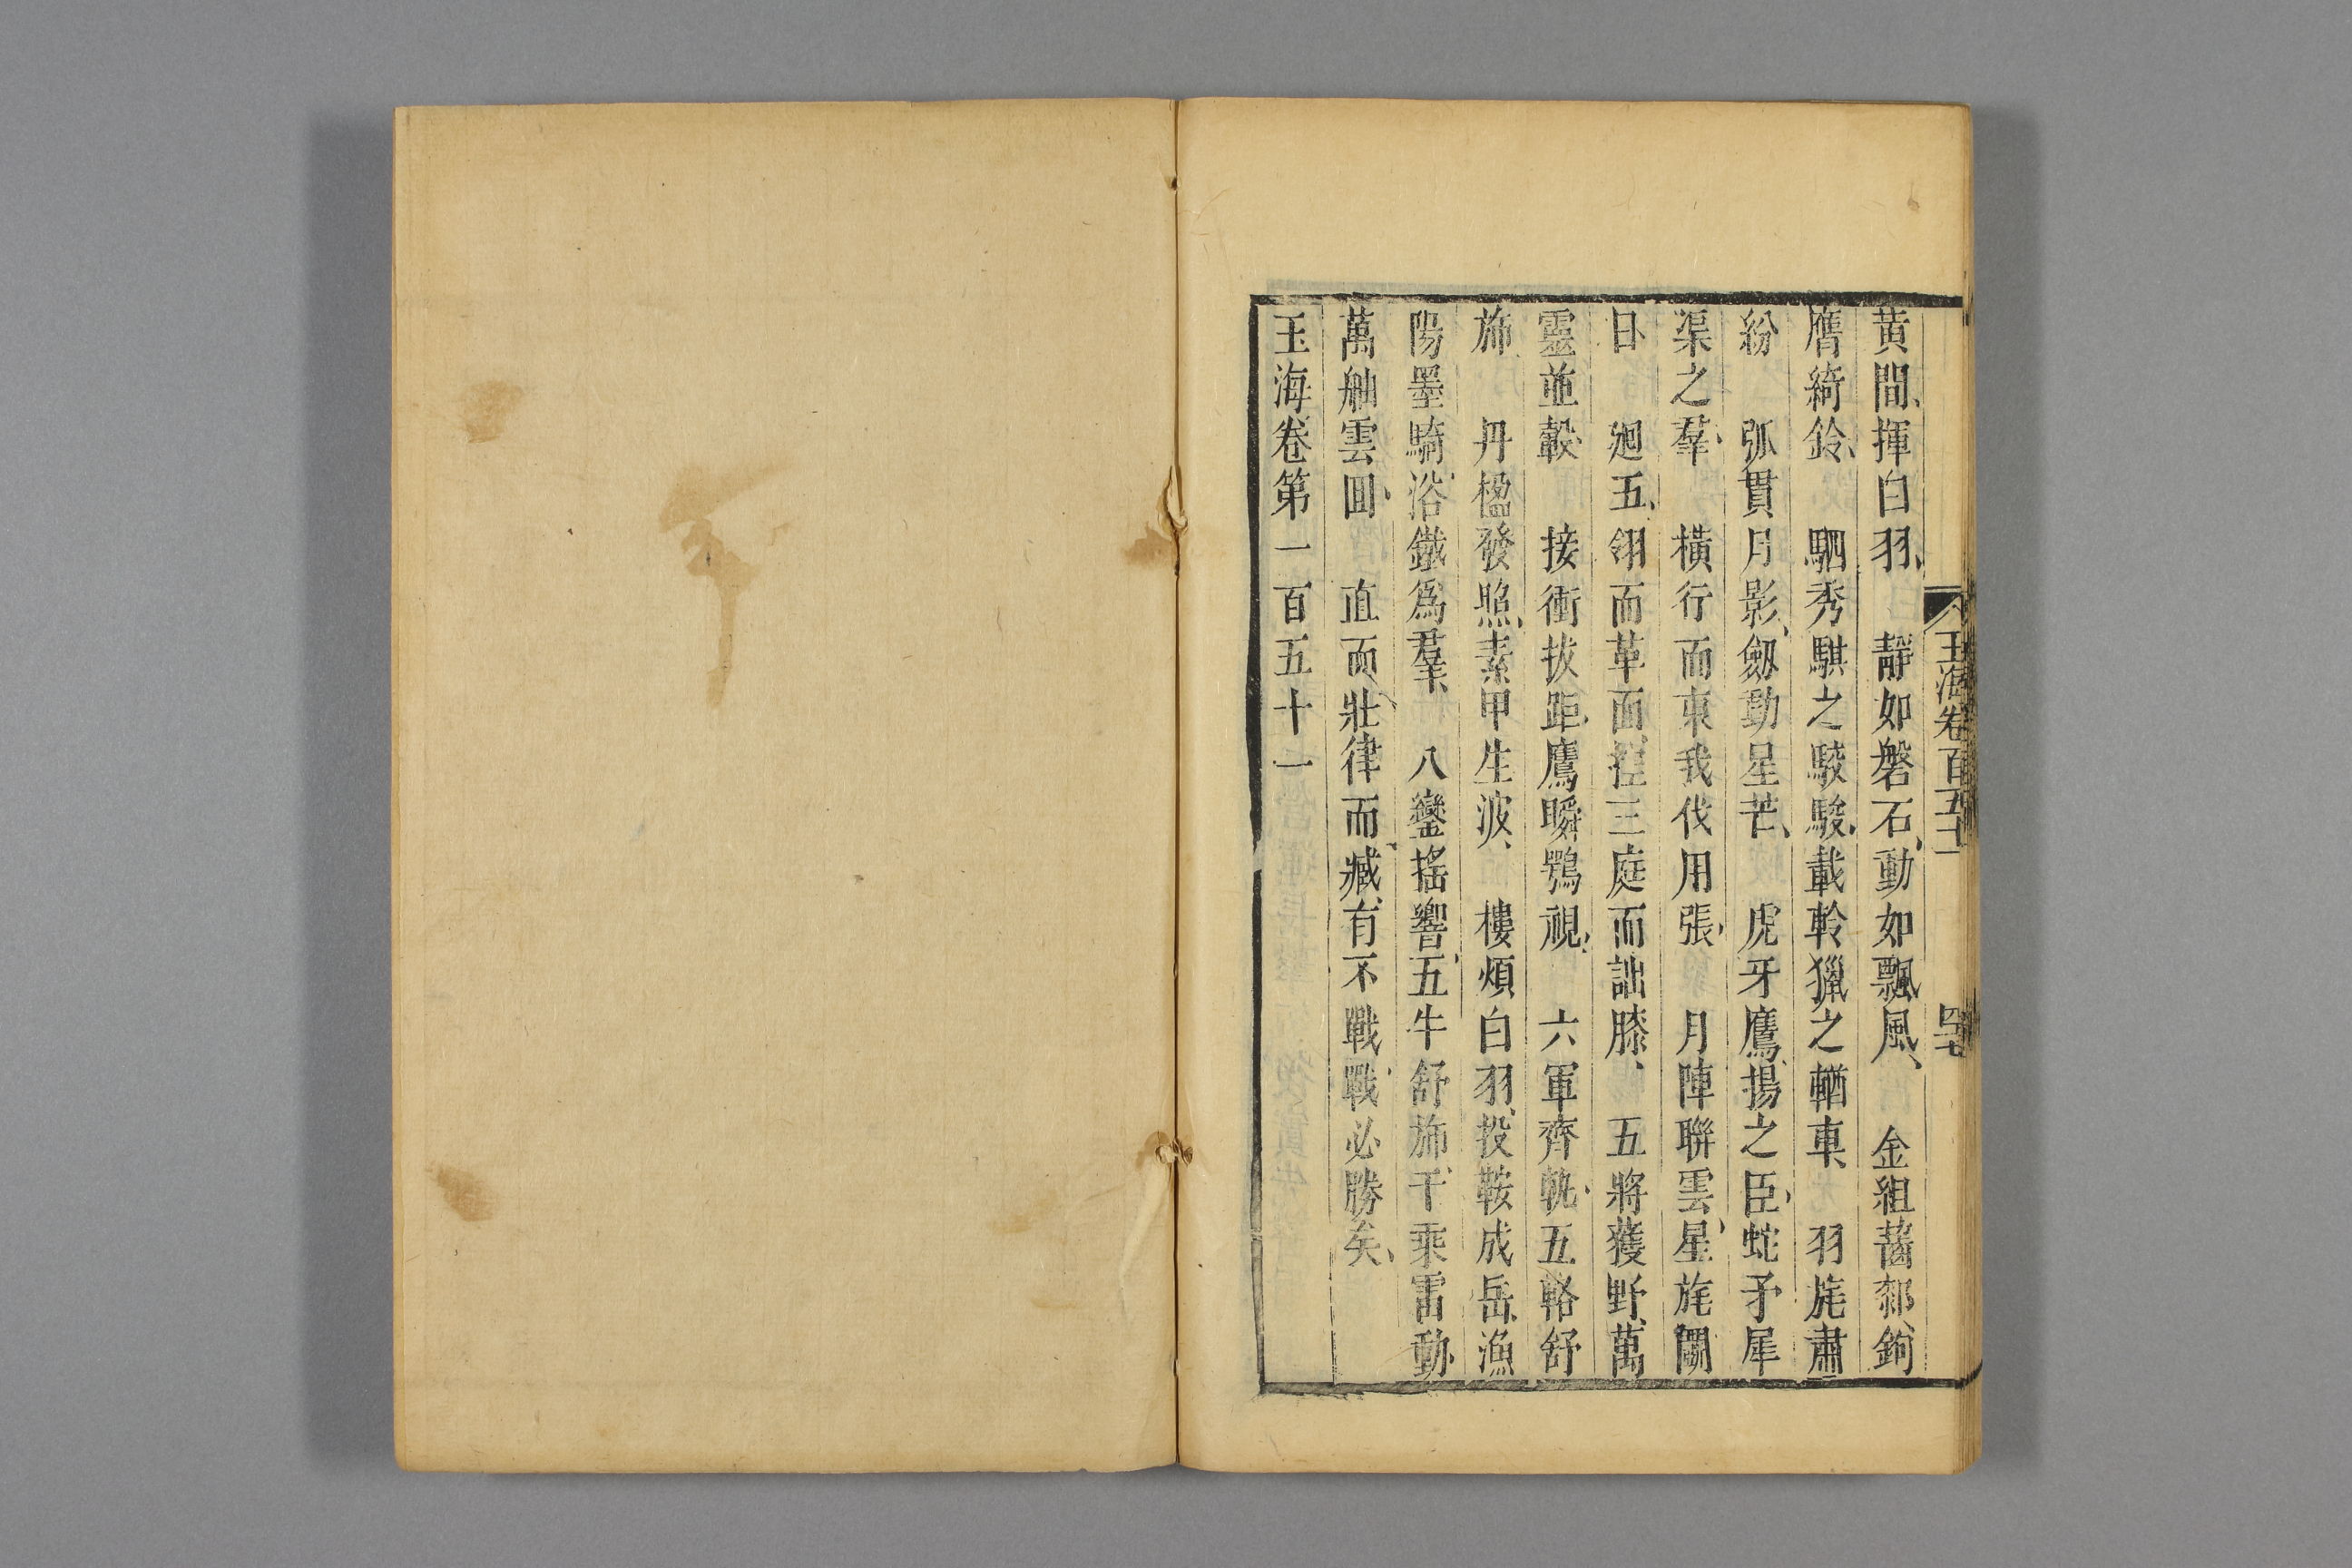 玉海卷百五十一　四十七
黄間、揮白羽、　靜如磐石、動如飄風、　金組蕃郲、鉤
膺綺鈴、　駟秀騏之駿駿、載軨獵之輶車、　羽旄肅
紛　弧貫月影、劔動星芒、　虎牙鷹揚之臣、蛇矛犀
渠之羣、　橫行而東我伐用張、　月陣聯雲、星旄闢
日　廻五、翎而革面、控三庭而詘膝、　五將獲野、萬
靈並轂、　接衝拔距、鷹瞬鶚視、　六軍齊軌、五輅舒
旆、　丹楹發照、素甲生波、　樓煩白羽、投鞍成岳、漁
陽墨騎、浴鐵爲羣、　八鑾搖響、五牛舒旆、千乘雷動、
萬舳雲圓、　直而壯、律而臧、有不戰、戰必勝矣、
玉海卷第一百五十一